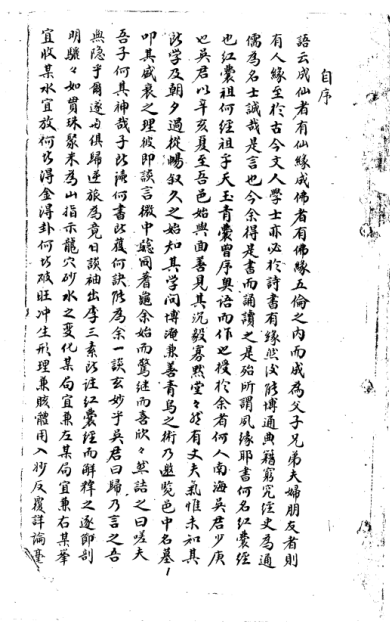 自序
語云成仙者有仙緣成佛者有佛緣五倫之內而成為父子兄弟夫婦朋友者則
有人緣至於古今文人學士亦必於詩書有緣然後能博通典籍窮究經史為通
儒為名士誠哉是言也今余得是書而誦讀之是殆所謂夙緣耶書何名紅囊經
也紅囊祖何經祖子天玉青囊曾序奧語而作也授於余者何人南海吳君少庚
也吳君以辛亥夏至吾邑始與面善見其沉毅寡默堂々然有丈夫氣惟未知其
所學及朝夕過從暢敘久之始知其學問博淹兼善青烏之術乃邀覧邑中名墓
叩其盛衰之理彼即談言微中聽同蓍龜余始而驚繼而喜欣々然詰之曰嗟夫
吾子何其神哉子所讀何書所獲何訣能為余一談玄妙乎吳君曰歸乃言之吾
無隐乎爾遂与俱歸逆旅為竟日談袖出李三素所註紅囊經而解釋之逐節剖
明驪々如貫珠聚米為山指示龍穴砂水之变化某局宜兼左某局宜兼右某峯
宜收某水宜放何以得金得卦何以破旺冲生形理兼賅體用入妙反覆詳論毫